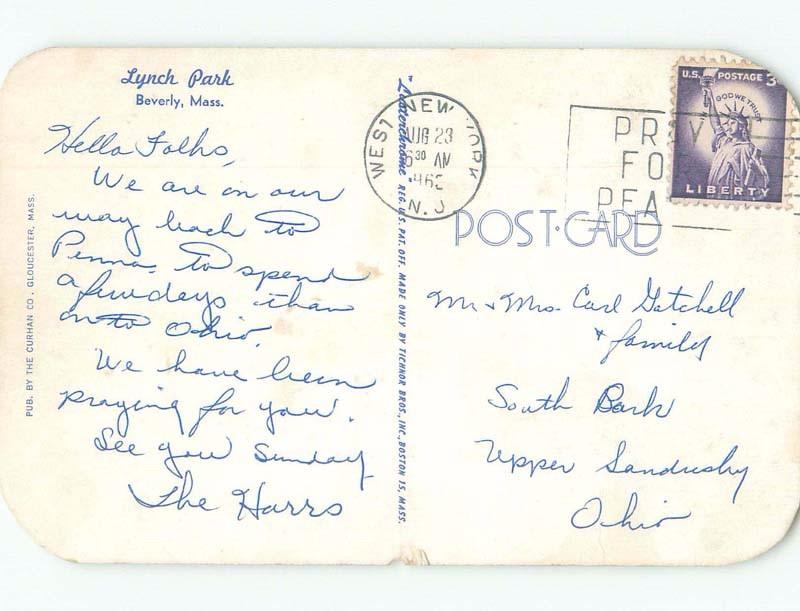 Lynch Park
Beverly, Mass.
Hello Folks,
We are on our
way back to
Penna. to spend
a few days than
on to Ohio.
We have been
praying for you.
See you Sunday
The Harrs
PUB. BY THE CURHAN CO., GLOUCESTER, MASS.
"Lusterchrome" REG. U.S. PAT. OFF. MADE ONLY BY TICHNOR BROS., INC., BOSTON 15, MASS.
WEST NEW YORK
AUG 23
6 30 AM
N. J.
PR
FO
PEA
U.S. POSTAGE 3
IN GOD WE TRUST
LIBERTY
POST-CARD
Mr & Mrs. Carl Gatchell
& family
South Bark
Upper Sandusky
Ohio